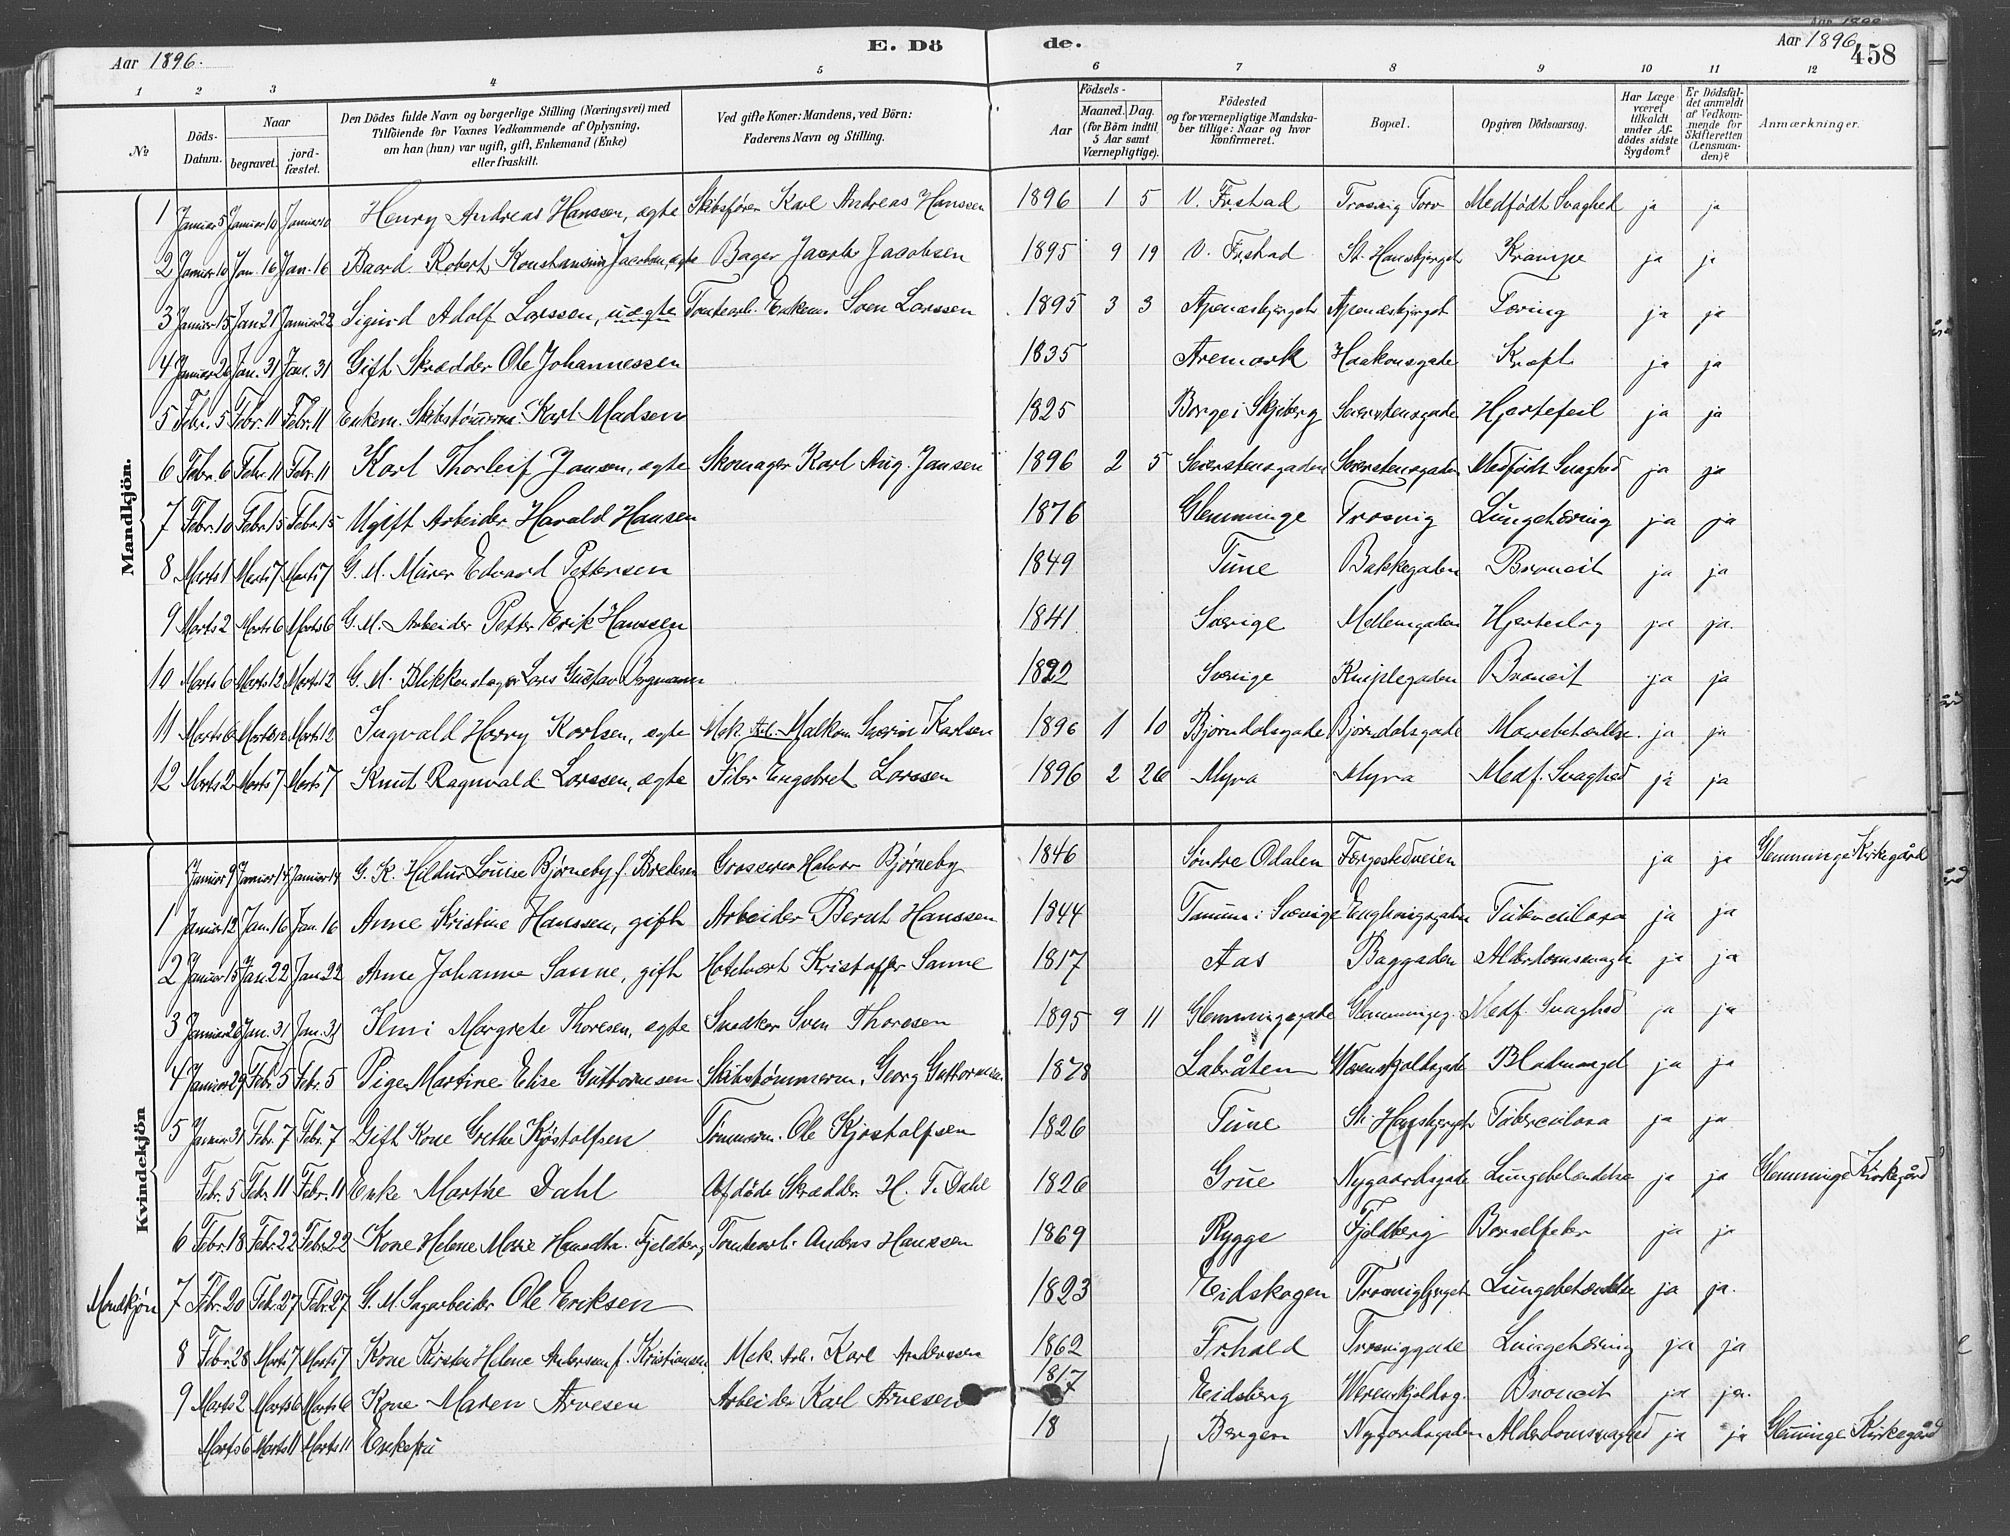 Aar 1896.
E. Dö de.
Aar 1896
458
1 2 3 4 5 6 7 8 9 10 11 12
№
Döds-Datum.
Naar begravet. jord-fæstet.
Den Dödes fulde Navn og borgerlige Stilling (Næringsvei) med Tilföiende for Voxnes Vedkommende af Oplysning, om han (hun) var ugift, gift, Enkemand (Enke) eller fraskilt.
Ved gifte Koner: Mandens, ved Börn: Faderens Navn og Stilling.
Födsels-
Aar
Maaned. Dag. (for Börn indtil 5 Aar samt Værnepligtige).
Födested og for værnepligtige Mandskaber tillige: Naar og hvor konfirmeret.
Bopæl.
Opgiven Dödsaarsag.
Har Læge været tilkaldt under Afdödes sidste Sygdom?
Er Dödsfaldet anmeldt af Vedkommende for Skifteretten (Lensmanden)?
Anmærkninger.
Mandkjön.
1 Januar 5 Januar 10 Januar 10 Henry Andreas Hanssen, ægte Skibsfører Karl Andreas Hanssen 1896 1 5 V. Fr.stad Trosvig Torv Medfødt Svaghed ja ja
2 Januar 10 Jan. 16 Jan. 16 Baard Robert Konstansius Jacobsen, ægte Bager Jacob Jacobsen 1895 9 19 V. Fr.stad St. Hansbjerget Krampe ja ja
3 Januar 15 Jan 21 Januar 22 Sigurd Adolf Larssen, uægte Tomtearb. Enkem. Sven Larssen 1895 3 3 Apenæsbjerget Apenæsbjerget Tæring ja ja
4 Januar 26 Jan. 31 Jan. 31 Gift Skrædder Ole Johannessen 1835 Aremark Haakonsgade Kræft ja ja
5 Febr. 5 Febr. 11 Febr. 11 Enkem. Skibstømmerm. Karl Madsen 1825 Borge i Skjeberg Sverstensgade Hjertefeil ja ja
6 Febr. 6 Febr. 11 Febr. 11 Karl Thorleif Jansen, ægte Skomager Karl Aug. Jansen 1896 2 5 Sverstensgaden Sverstensgaden Medfødt Svaghed ja ja
7 Febr. 10 Febr. 15 Febr. 15 Ugift Arbeider Harald Hansen 1876 Glemminge Trosvig Lungetæring ja ja
8 Marts 1 Marts 7 Marts 7 G. M. Murer Edvard Pettersen 1849 Tune Bakkegaden Broncit ja ja
9 Marts 2 Marts 6 Marts 6 G. M. Arbeider Petter Erik Hanssen 1841 Sverige Mellemgaden Hjerteslag ja ja.
10 Marts 6 Marts 12 Marts 12 G. M. Blikkenslager Lars Gustav 1822 Sverige Kniplegaden Broncit ja ja
11 Marts 6 Marts 12 Marts 12 Ingvald Harry Karlsen, ægte Mek. Arb. Malkom Severin Karlsen 1896 1 10 Bjørndalsgade Bjørndalsgade Mavebetændelse. ja ja
12 Marts 2 Marts 7 Marts 7 Knut Ragnvald Larssen, ægte Fiber Engebret Larssen 1896 2 26 Myra Myra Medf. Svaghed ja ja
Kvindekjön
Januar 9 Januar 14 Januar 14 G. K. Hildur Louise Bjørneby f. Bredesen Grosserer Halvor Bjørneby 1846 Søndre Odalen Færgestedveien ja ja Glemminge Kirkegård
1 Januar 12 Jan. 16 Jan. 16 Anne Kristine Hanssen, gift Arbeider Bernt Hanssen 1844 Tanum i Sverige Enghaugsgaden Tuberculose ja ja
2 Januar 15 Jan. 22 Jan 22 Anne Johanne Sanne, gift Hotelvært Kristoffer Sanne 1817 Aas Baggaden Alderdomssvagh ja ja
3 Januar 26 Jan. 31 Jan. 31 Ilmi Margrete Thoresen, ægte Snedker Sven Thoresen 1895 9 11 Glemmingegade Glemmingeg. Medf. Svaghed ja ja
4 Januar 29 Febr. 5 Febr. 5 Pige Martine Elise Guttormsen Skibstømmerm. Georg Guttormsen 1878 Labråten Werenskjoldsgade Blodmangel ja ja
5 Januar 31 Febr. 7 Febr. 7 Gift Kone Grethe Kjøstolfsen Tømmerm. Ole Kjøstolfsen 1826 Tune St. Hansbjerget Tuberculose ja ja
Febr. 5 Febr. 11 Febr. 11 Enke Marthe Dahl Afdøde Skrædder H. T. Dahl 1826 Grue Nygaardsgade Lungebetændelse ja ja Glemminge Kirkegård
6 Febr. 18 Febr. 22 Febr. 22 Kone Helene Marie Hansdtr. Fjeldberg Tomtearb. Anders Hanssen 1869 Rygge Fjeldberg Barselfeber ja ja
Mandkjøn 7 Febr. 20 Febr. 27 Febr. 27 G. M. Sagarbeider Ole Eriksen 1823 Eidskogen Trosvigbjerget Lungebetændelse ja ja.
8 Febr. 28 Marts 7 Marts 7 Kone Kirsten Helene Andersen f. Kristiansen Mek. Arb. Karl Andersen 1862 Fr.hald Trosviggade Lungetæring ja ja
9 Marts 2 Marts 6 Marts 6 Kone Maren Arvesen Arbeider Karl Arvesen 1817 Eidsberg Werenskjoldsg. Broncit ja ja.
Marts 6 Marts 11 Marts 11 Enkefru 18 Bergen Nygaardsgaden Alderdomssvaghed ja ja Glemminge Kirkegård